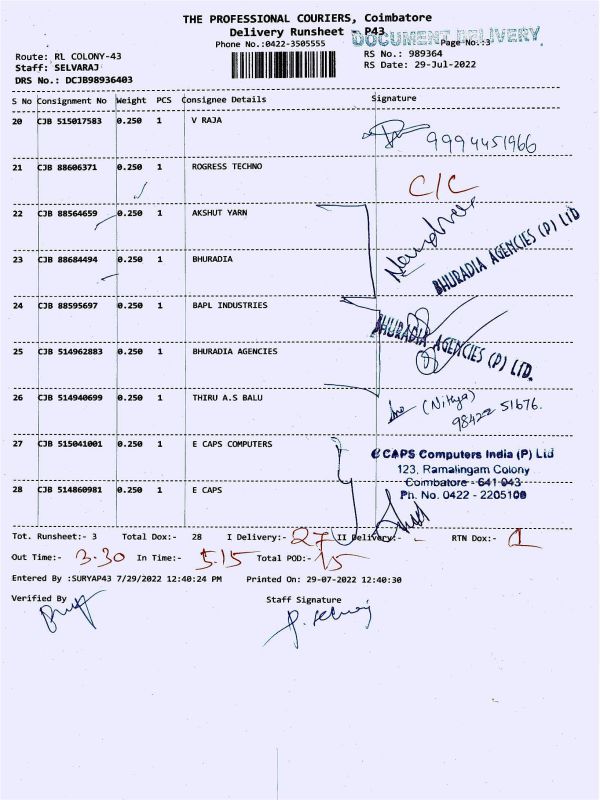 THE PROFESSIONAL COURIERS, Coimbatore
Delivery Runsheet - P43
DOCUMENT DELIVERY
Phone No.:0422-3505555
Page No.:3
Route: RL COLONY-43
RS No.: 989364
Staff: SELVARAJ
RS Date: 29-Jul-2022
DRS No.: DCJB98936403
S No Consignment No Weight PCS Consignee Details Signature
20 CJB 515017583 0.250 1 V RAJA
9994451966
21 CJB 88606371 0.250 1 ROGRESS TECHNO
C/C
22 CJB 88564659 0.250 1 AKSHUT YARN
BHURADIA AGENCIES (P) LTD
23 CJB 88684494 0.250 1 BHURADIA
24 CJB 88595697 0.250 1 BAPL INDUSTRIES
BHURADIA AGENCIES (P) LTD.
25 CJB 514962883 0.250 1 BHURADIA AGENCIES
26 CJB 514940699 0.250 1 THIRU A.S BALU
(Nithya)
98422 51676.
27 CJB 515041001 0.250 1 E CAPS COMPUTERS
e CAPS Computers India (P) Ltd
123, Ramalingam Colony
Coimbatore - 641 043
Ph. No. 0422 - 2205100
28 CJB 514860981 0.250 1 E CAPS
Tot. Runsheet:- 3 Total Dox:- 28 I Delivery:- 27 II Delivery:- - RTN Dox:- 1
Out Time:- 3.30 In Time:- 5.15 Total POD:- 15
Entered By :SURYAP43 7/29/2022 12:40:24 PM Printed On: 29-07-2022 12:40:30
Verified By Staff Signature